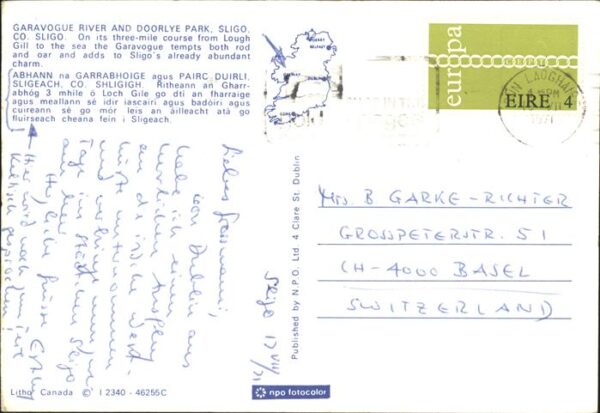 GARAVOGUE RIVER AND DOORLYE PARK, SLIGO,
CO. SLIGO. On its three-mile course from Lough
Gill to the sea the Garavogue tempts both rod
and oar and adds to Sligo's already abundant
charm.
ABHANN na GARRABHOIGE agus PAIRC DUIRLI,
SLIGEACH, CO. SHLIGIGH. Ritheann an Gharr-
abhóg 3 mhíle ó Loch Gile go dtí an fharraige
agus meallann sé idir iascairí agus badóirí agus
cuireann sé go mór leis an áilleacht atá go
flúirseach cheana fein i Sligeach.
europa
EIRE 4
1971
Liebes
von Dublin aus
habe ich einen
herrlichen Ausflug
an die irische West-
küste unternommen
und verbringe nun zwei
Tage im Städtchen Sligo
am Meer.
Herzliche Grüsse
Hier wird noch zum Teil
Keltisch gesprochen!
Sligo 17 VII/71
Published by N.P.O. Ltd. 4 Clare St. Dublin
Mrs. B GARKE-RICHTER
GROSSPETERSTR. 51
CH-4000 BASEL
SWITZERLAND
Litho Canada © I 2340 - 46255C
npo fotocolor